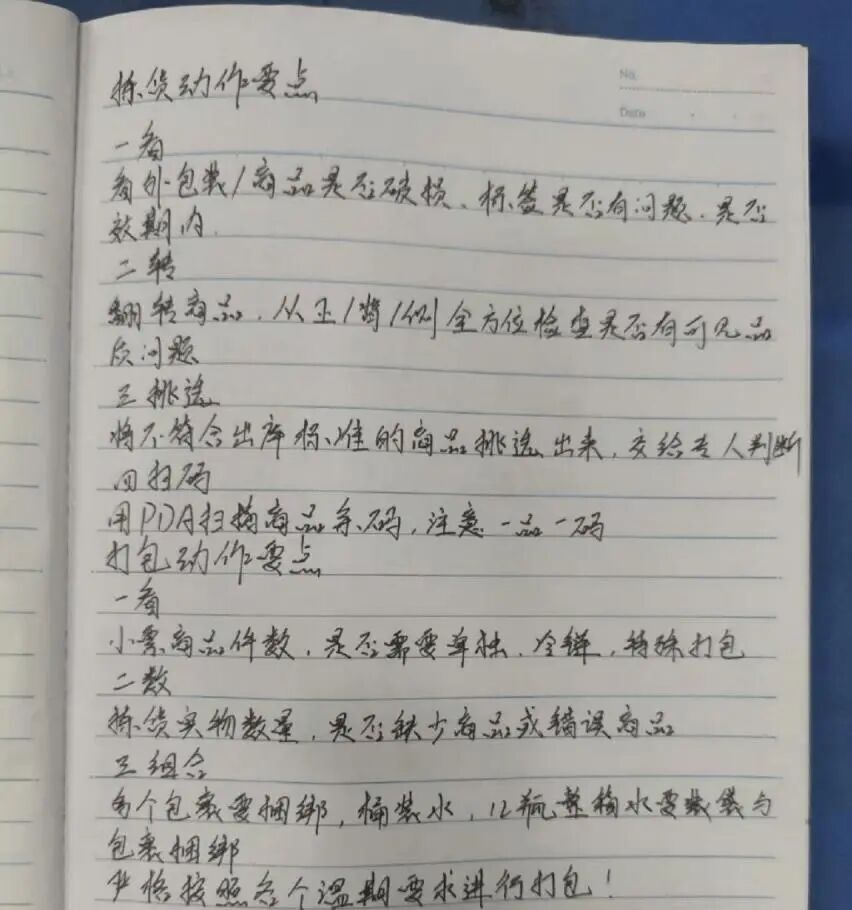 No.
Date
拣货动作要点
一看
看外包装/商品是否破损、标签是否有问题、是否
效期内.
二转
翻转商品，从正/背/侧全方位检查是否有可见品
质问题
三挑选
将不符合出库标准的商品挑选出来，交给专人判断
四扫码
用PDA扫描商品条码，注意一品一码
打包动作要点
一看
小票商品件数，是否需要单独、冷链，特殊打包
二数
拣货实物数量，是否缺少商品或错误商品
三组合
多个包裹要捆绑，桶装水，12瓶整箱水要装袋与
包裹捆绑
严格按照各个温期要求进行打包！